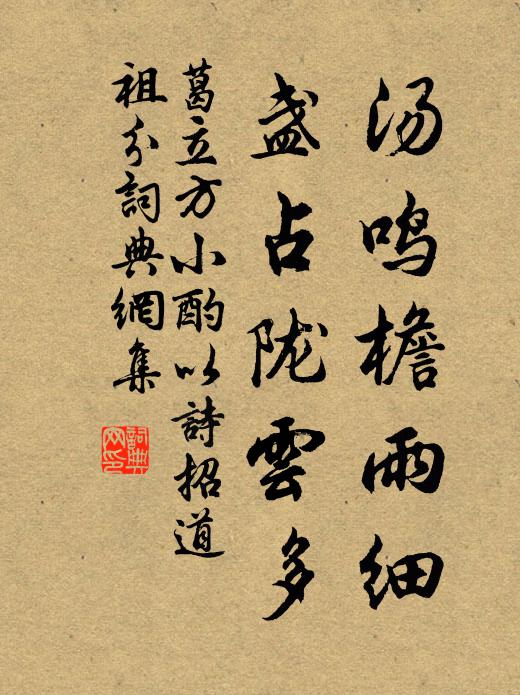 汤鸣檐雨细
盏占陇雲多
葛立方小酌以詩招道
祖分詞典網集
詞典
网印